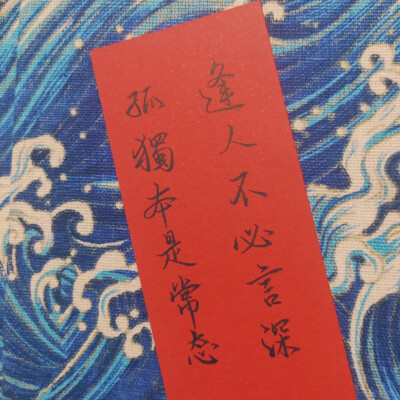 逢人不必言深
孤獨本是常态